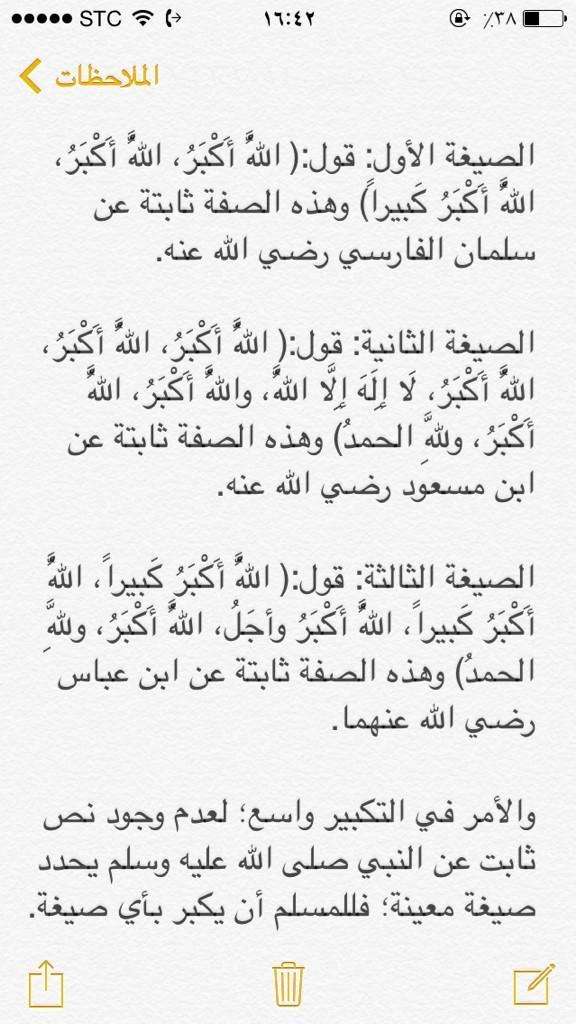 STC ١٦:٤٢ ٪٣٨
الملاحظات
الصيغة الأول: قول:( اللهُ أَكْبَرُ، اللهُ أَكْبَرُ،
اللهُ أَكْبَرُ كَبيراً) وهذه الصفة ثابتة عن
سلمان الفارسي رضي الله عنه.
الصيغة الثانية: قول:( اللهُ أَكْبَرُ، اللهُ أَكْبَرُ،
اللهُ أَكْبَرُ، لَا إِلَهَ إِلَّا اللهُ، واللهُ أَكْبَرُ، اللهُ
أَكْبَرُ، وللهِ الحمدُ) وهذه الصفة ثابتة عن
ابن مسعود رضي الله عنه.
الصيغة الثالثة: قول:( اللهُ أَكْبَرُ كَبيراً، اللهُ
أَكْبَرُ كَبيراً، اللهُ أَكْبَرُ وأجَلُ، اللهُ أَكْبَرُ، وللهِ
الحمدُ) وهذه الصفة ثابتة عن ابن عباس
رضي الله عنهما.
والأمر في التكبير واسع؛ لعدم وجود نص
ثابت عن النبي صلى الله عليه وسلم يحدد
صيغة معينة؛ فللمسلم أن يكبر بأي صيغة.